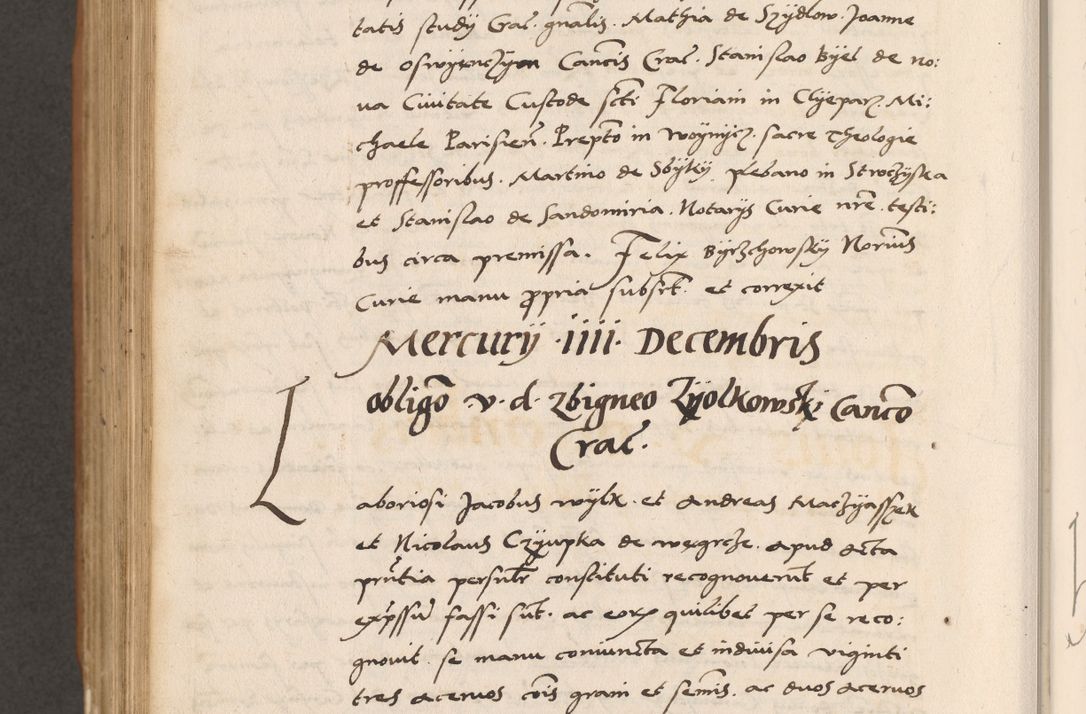 tatis studÿ Crac̃. gnãlis. Mathia de Szydlow. Joanne
de Oswÿenczÿm Canc̃is Crac̃. Stanislao Byel de no:
va Civitate Custode sc̃ti Floriani in Clyeparz. Mi:
chaele Parisieñ. Prepto in Woÿnÿcz. sacre Theologie
proffessoribus. Martino de Sbÿlky plebano in Stroczyska
et Stanislao de Sandomiria. Notarÿs Curie nrẽ. testi:
bus circa premissa. Felix Byrzchowsky Norius
Curie manu ppria subsct. et correxit
Mercurÿ ·iiii· Decembris
obligõ ·v·d· Zbigneo Zÿolkowski Cancõ
Crac̃.
Laboriosi Jacobus wÿlk et Andreas Maczÿasszek
et Nicolaus Czÿupka de węgrcze. apud acta
pñtia persnlr constituti recognoverũt et per
expssũ fassi sũt. ac eorꝝ quilibet per se reco:
gnovit. se manu coniuncta et indivisa viginti
tres acervos cõis grani et semis. ac duos acervos